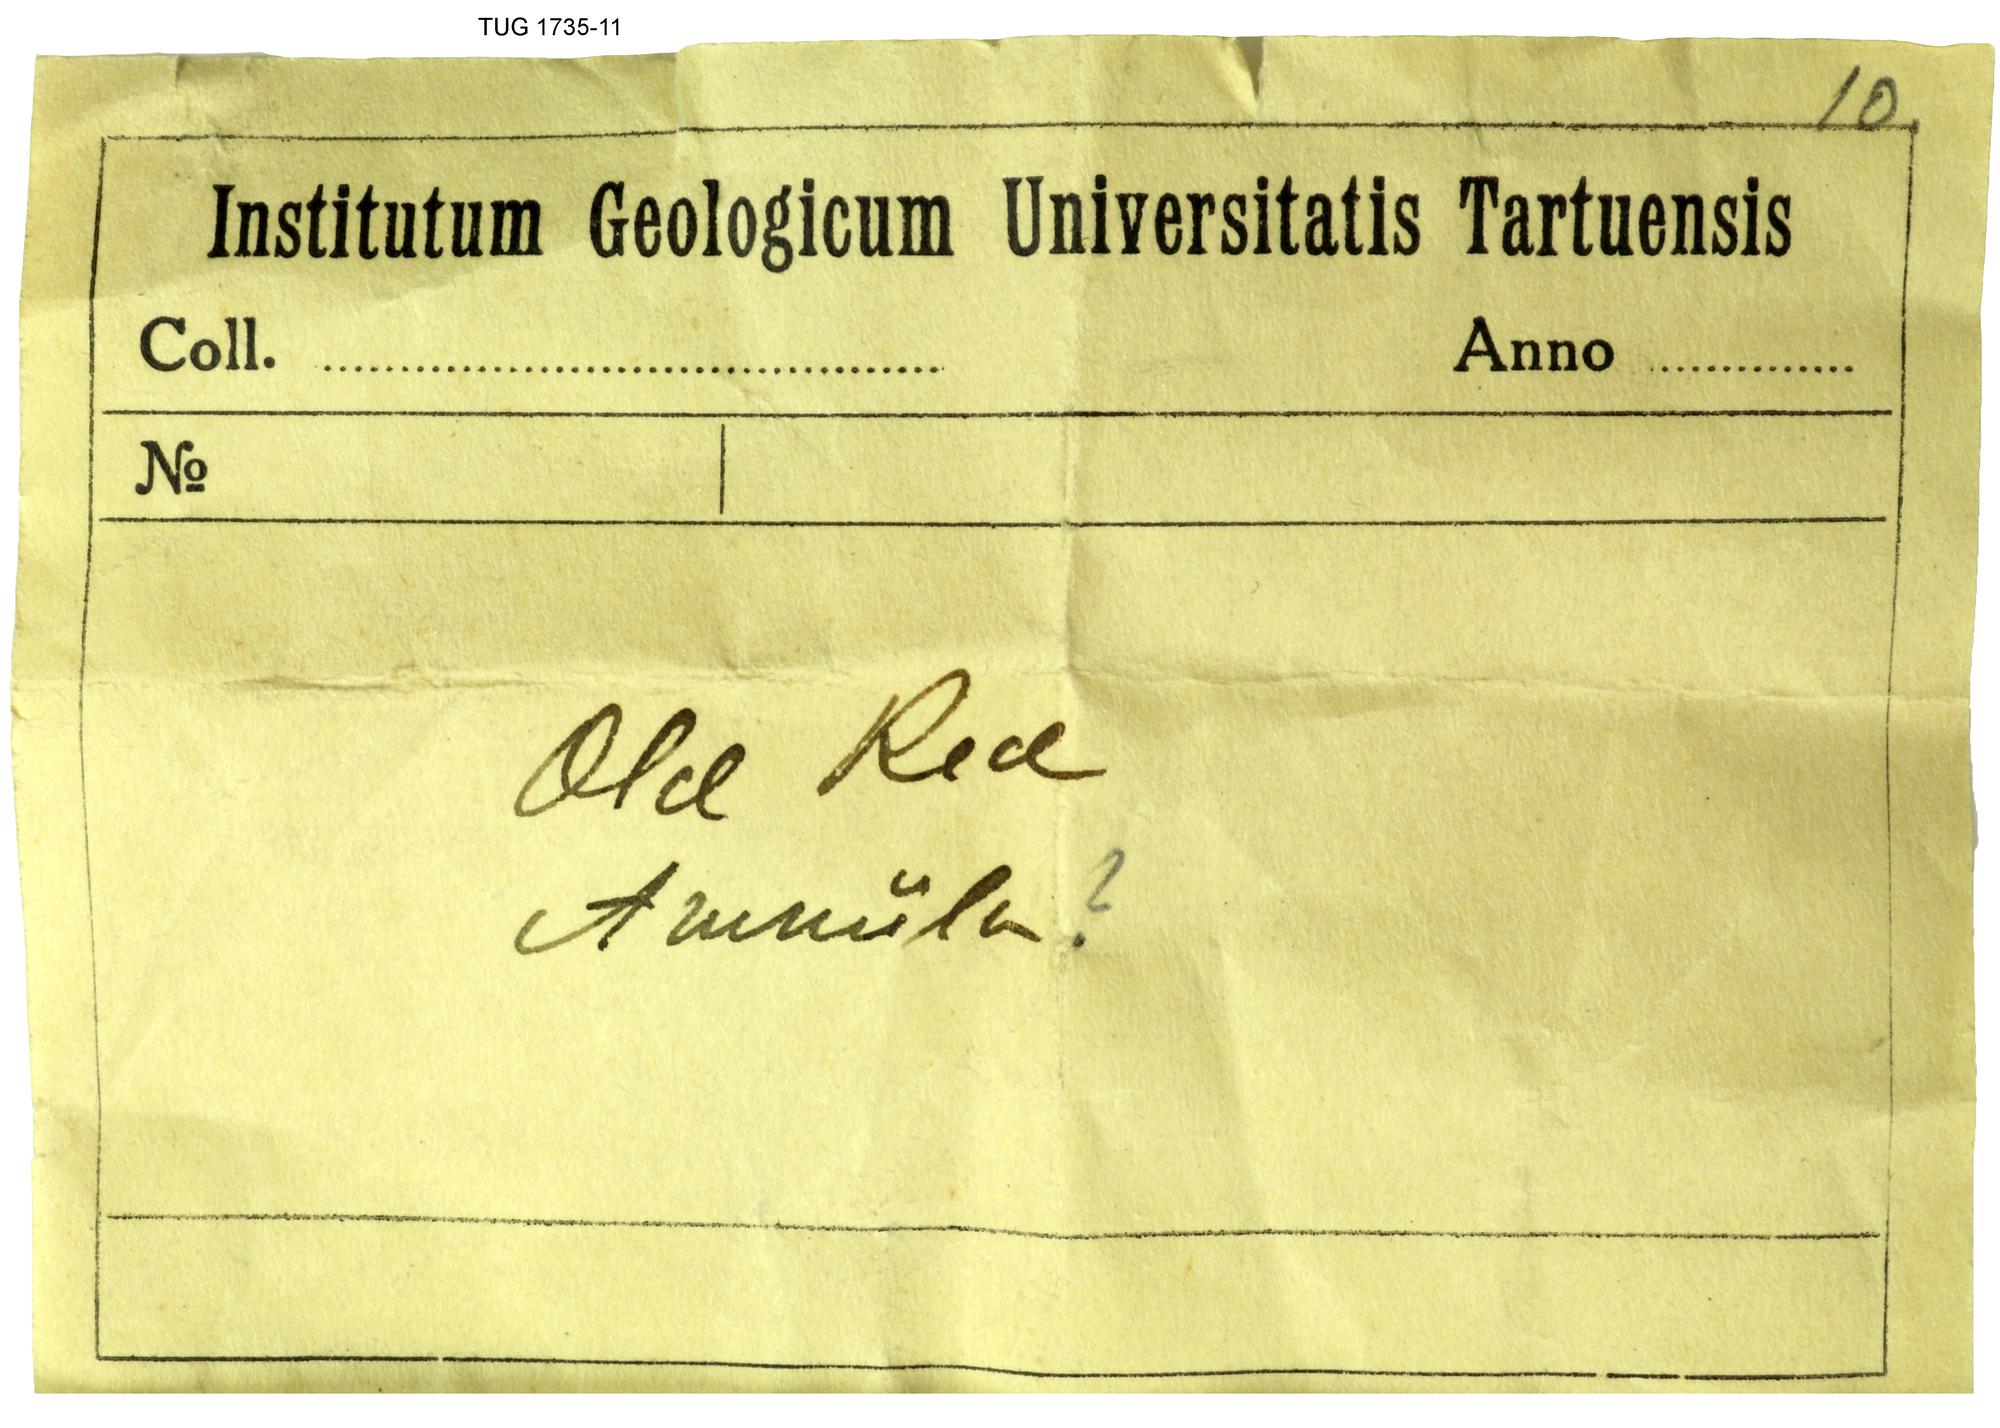 TUG 1735-11
10.
Institutum Geologicum Universitatis Tartuensis
Coll. ........................................ Anno ..............
№
Old Red
?